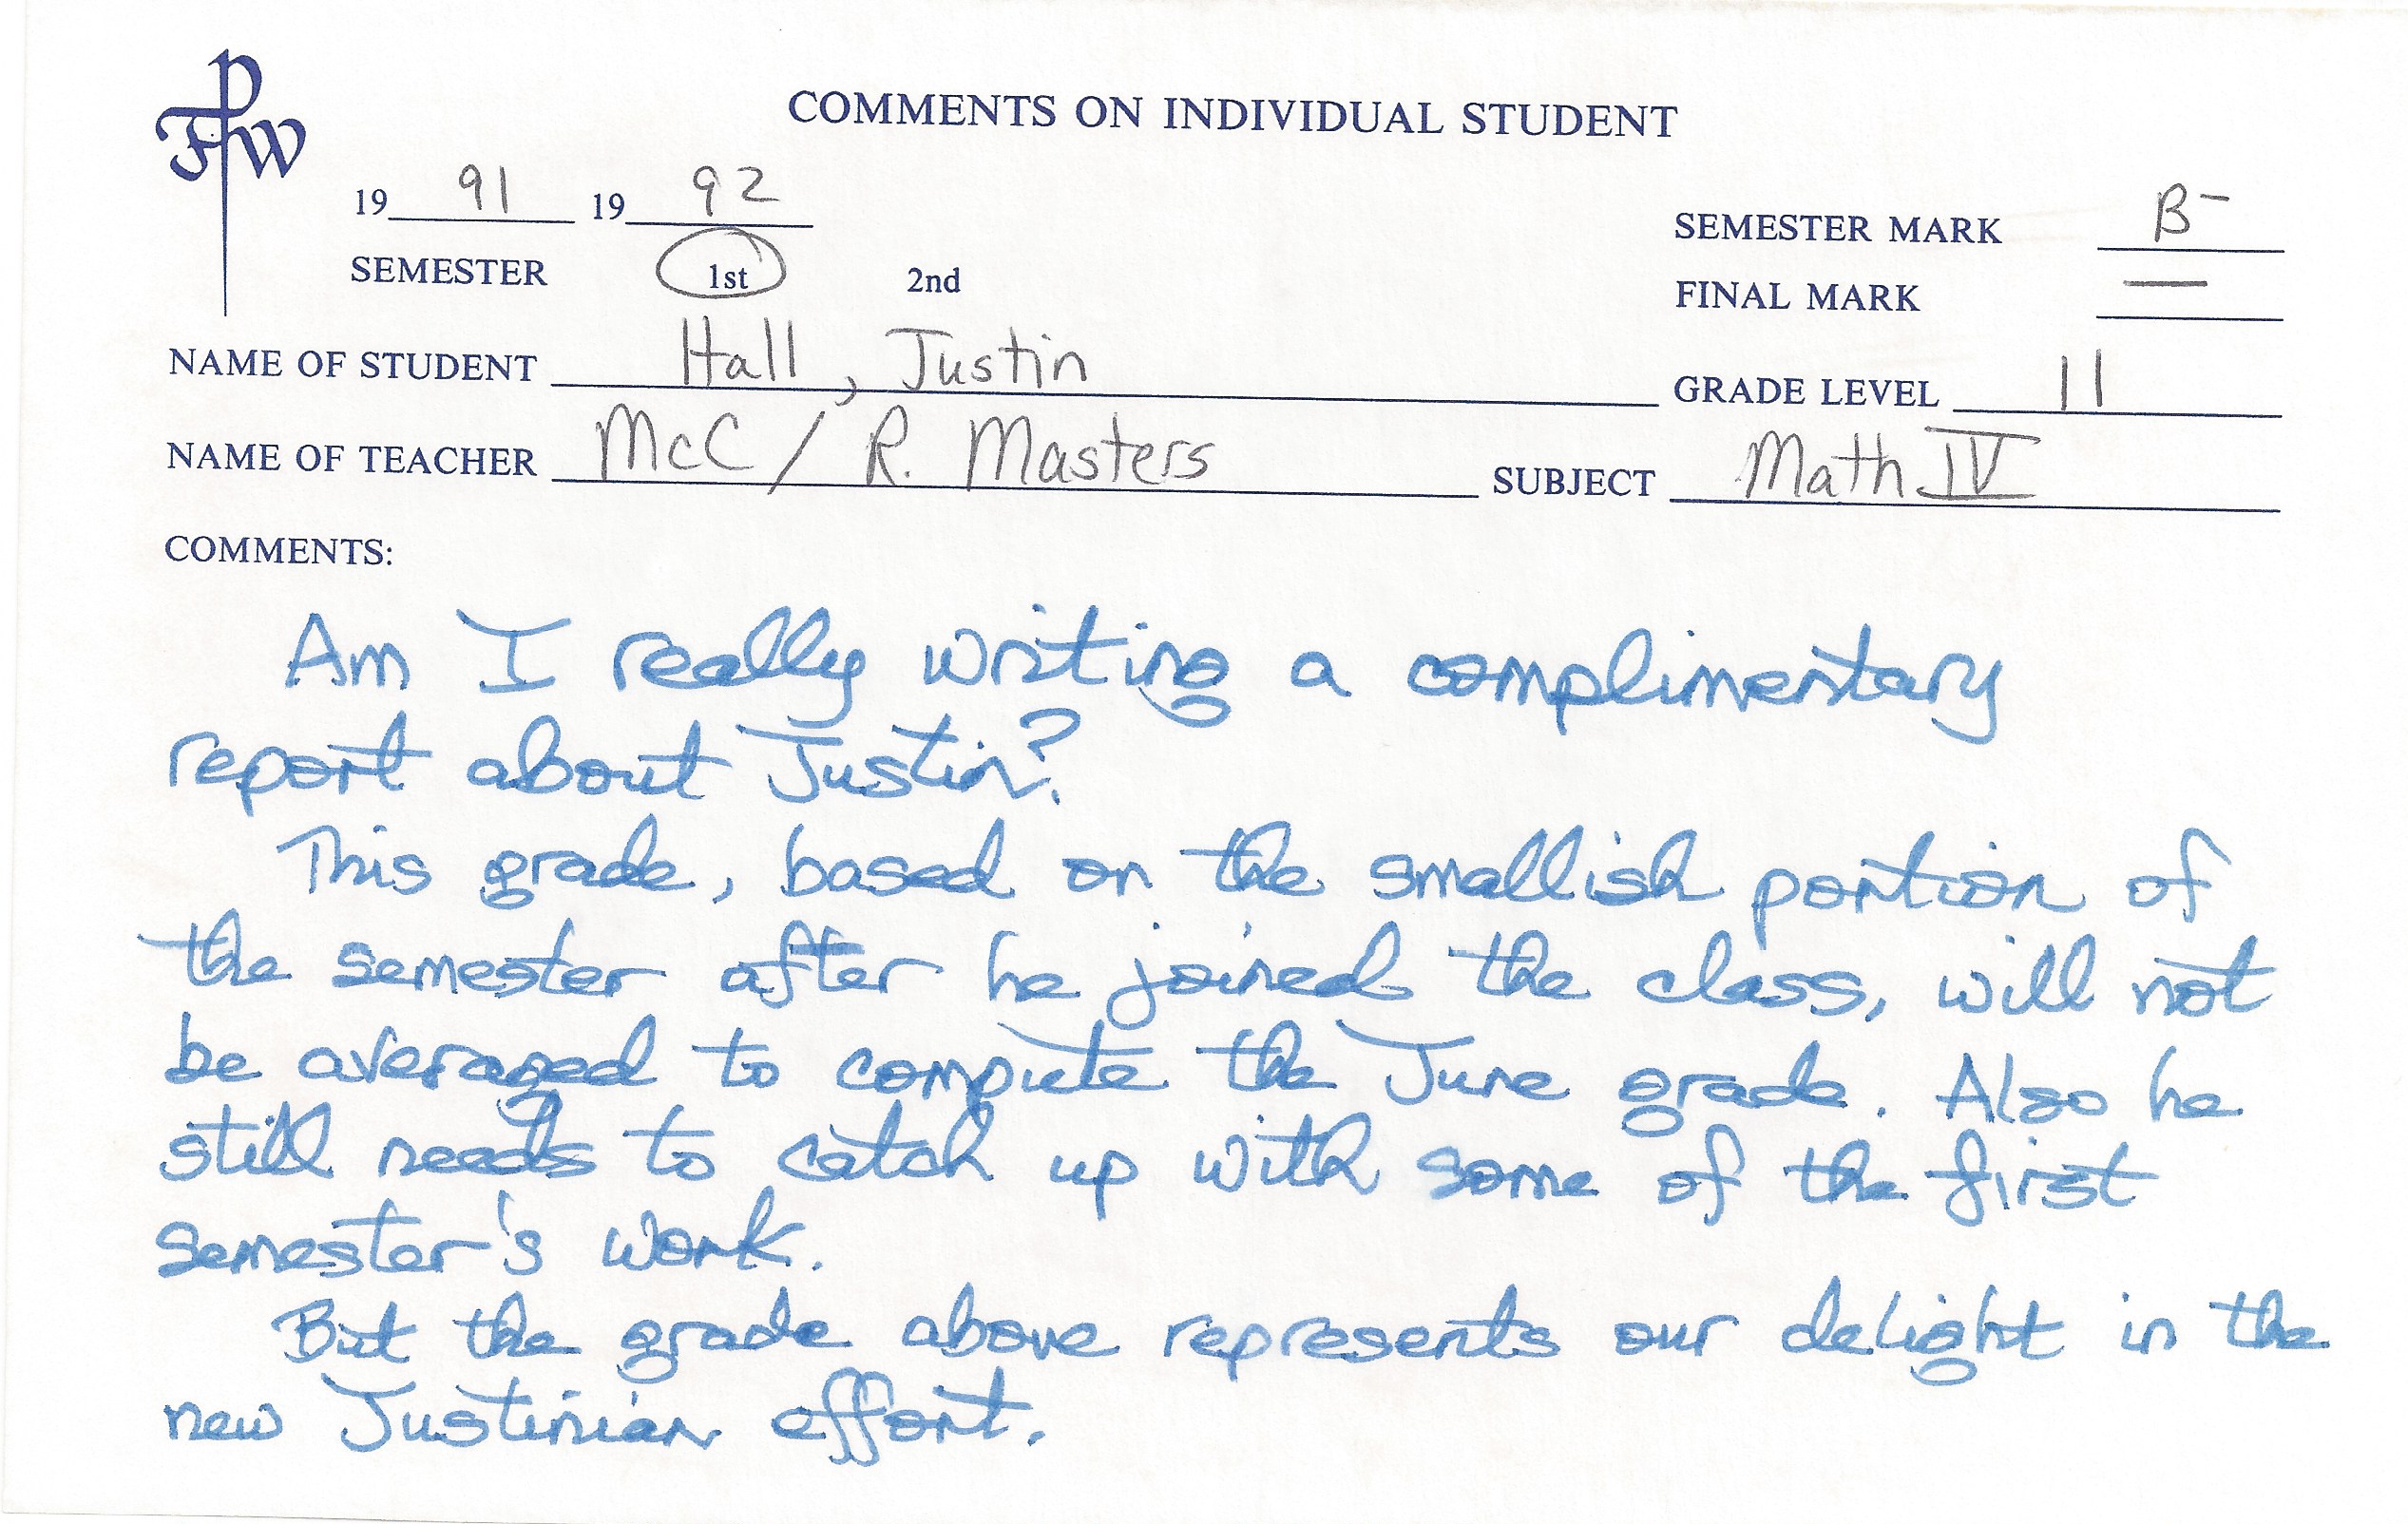 FPW
COMMENTS ON INDIVIDUAL STUDENT
19 91 19 92
SEMESTER MARK B-
SEMESTER 1st 2nd
FINAL MARK —
NAME OF STUDENT Hall, Justin
GRADE LEVEL 11
NAME OF TEACHER McC / R. Masters
SUBJECT Math IV
COMMENTS:
Am I really writing a complimentary
report about Justin?
This grade, based on the smallish portion of
the semester after he joined the class, will not
be averaged to compute the June grade. Also he
still needs to catch up with some of the first
semester's work.
But the grade above represents our delight in the
new Justinian effort.